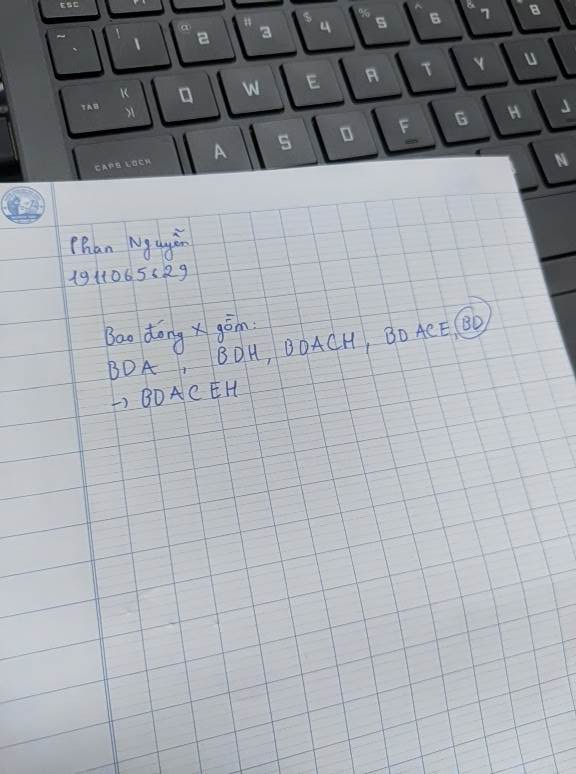 ESC
~ ` ! 1 @ 2 # 3 $ 4 % 5 ^ 6 & 7 8
TAB Q W E R T Y U
CAPS LOCK A S D F G H J
N
Phan Nguyễn
Bao đóng X gồm:
BDA, BDH, BDACH, BDACE, BD
→ BDACEH